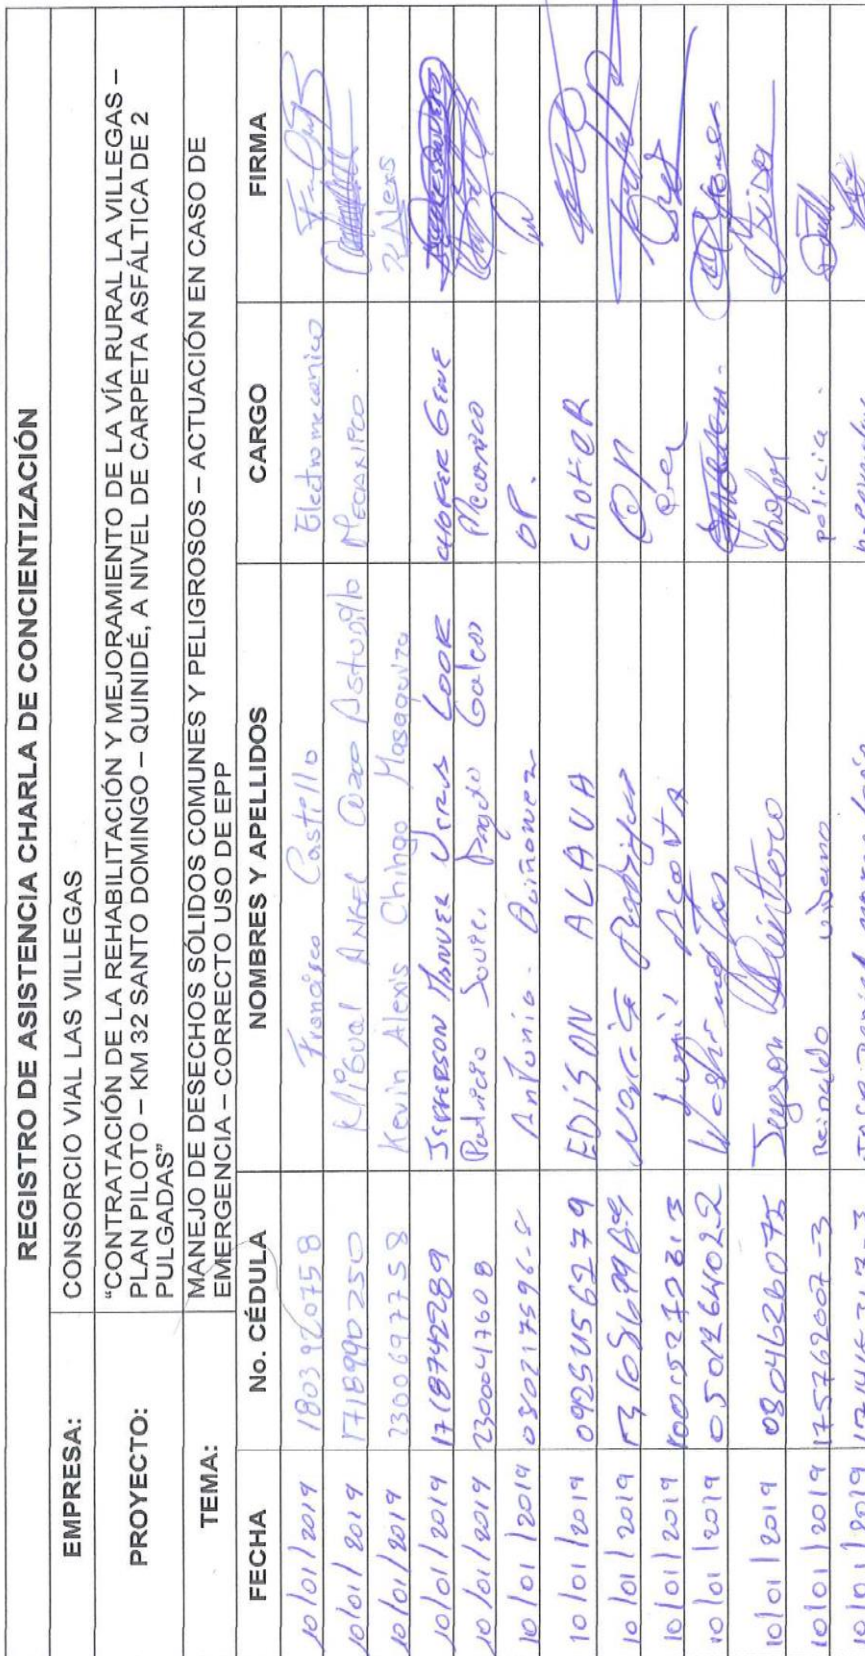 REGISTRO DE ASISTENCIA CHARLA DE CONCIENTIZACIÓN
EMPRESA: CONSORCIO VIAL LAS VILLEGAS
PROYECTO: "CONTRATACIÓN DE LA REHABILITACIÓN Y MEJORAMIENTO DE LA VÍA RURAL LA VILLEGAS –
PLAN PILOTO – KM 32 SANTO DOMINGO – QUINIDÉ, A NIVEL DE CARPETA ASFÁLTICA DE 2
PULGADAS"
TEMA: MANEJO DE DESECHOS SÓLIDOS COMUNES Y PELIGROSOS – ACTUACIÓN EN CASO DE
EMERGENCIA – CORRECTO USO DE EPP
FECHA No. CÉDULA NOMBRES Y APELLIDOS CARGO FIRMA
10/01/2019 1803920758 Francisco Castillo Electromecanico
10/01/2019 1718990250 Miguel Angel Cuzco Astudillo Mecanico.
10/01/2019 2300697758 Kevin Alexis Chingo Masaquiza K Alexis
10/01/2019 1718742289 Jefferson Manuel Vera Loor chofer
10/01/2019 2300417608 Patricio Mecanico
10/01/2019 080217596-8 Antonio. Quiñonez OP.
10/01/2019 0925456279 EDISON ALAVA chofeR
10/01/2019
10/01/2019 Luis Acosta
10/01/2019 0501264022 Washington
10/01/2019 0804626075 Jeyson Quintero chofer
10/01/2019 175762007-3 Reinaldo policia.
10/01/2019 Jose Daniel